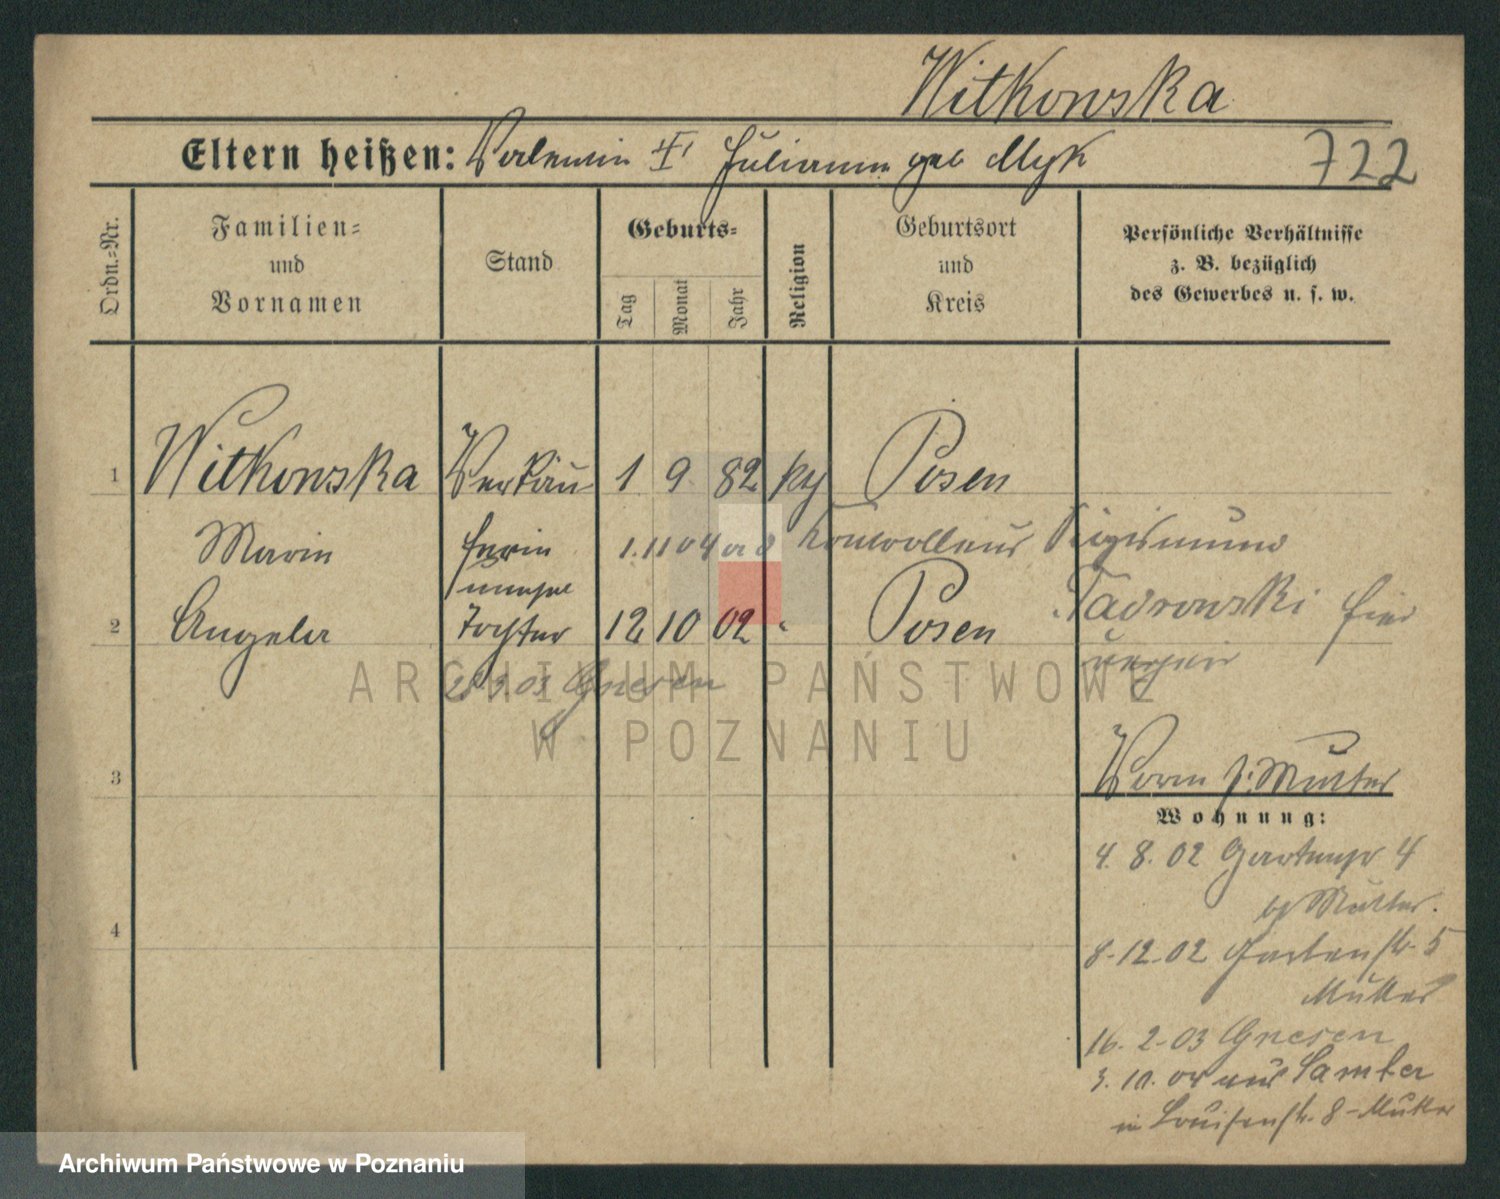 Witkowska
Eltern heißen: Valentin † Julianna geb Myk
722
Ordn.-Nr.
Familien- und Vornamen
Stand
Geburts-
Tag
Monat
Jahr
Religion
Geburtsort und Kreis
Persönliche Verhältnisse
z. B. bezüglich
des Gewerbes u. s. w.
1 Witkowska Verkäu 1 9 82 kth Posen
Maria ferin 1.11 04 Kontrolleur Sigismund
2 Angela Tochter 12 10 02 " Posen
Tadrowski hier
03 Gnesen
ARCHIWUM PAŃSTWOWE
W POZNANIU
3 Vorm z: Mutter
Wohnung:
4. 8. 02 Gartenstr 4
b/ Mutter.
4
8-12-02 Gartenstr. 5
Mutter
16. 2-03 Gnesen
3. 10. 04 aus Samter
in Louisenstr. 8-Mutter
Archiwum Państwowe w Poznaniu